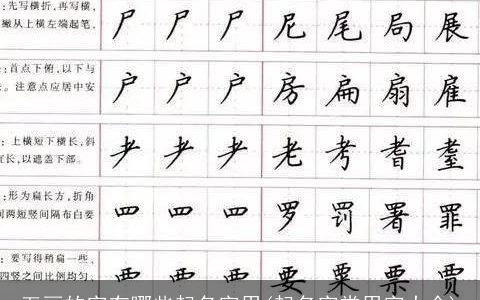 ：先写横折,再写横,
撇从上横左端起笔.
尸 尸 尸 尼 尾 局 展
：首点下俯,以下与
。注意点应居中安
户 户 户 房 扁 扇 雇
：上横短下横长,斜
长,以遮盖下部.
耂 耂 耂 老 考 耆 耋
：形为扁长方,折角
间两短竖间隔布白要
罒 罒 罒 罗 罚 署 罪
：要写得稍扁一些,
四竖之间比例均匀.
覀 覀 覀 要 栗 票 贾
的字有哪些起名字用(起名字常用字大全)